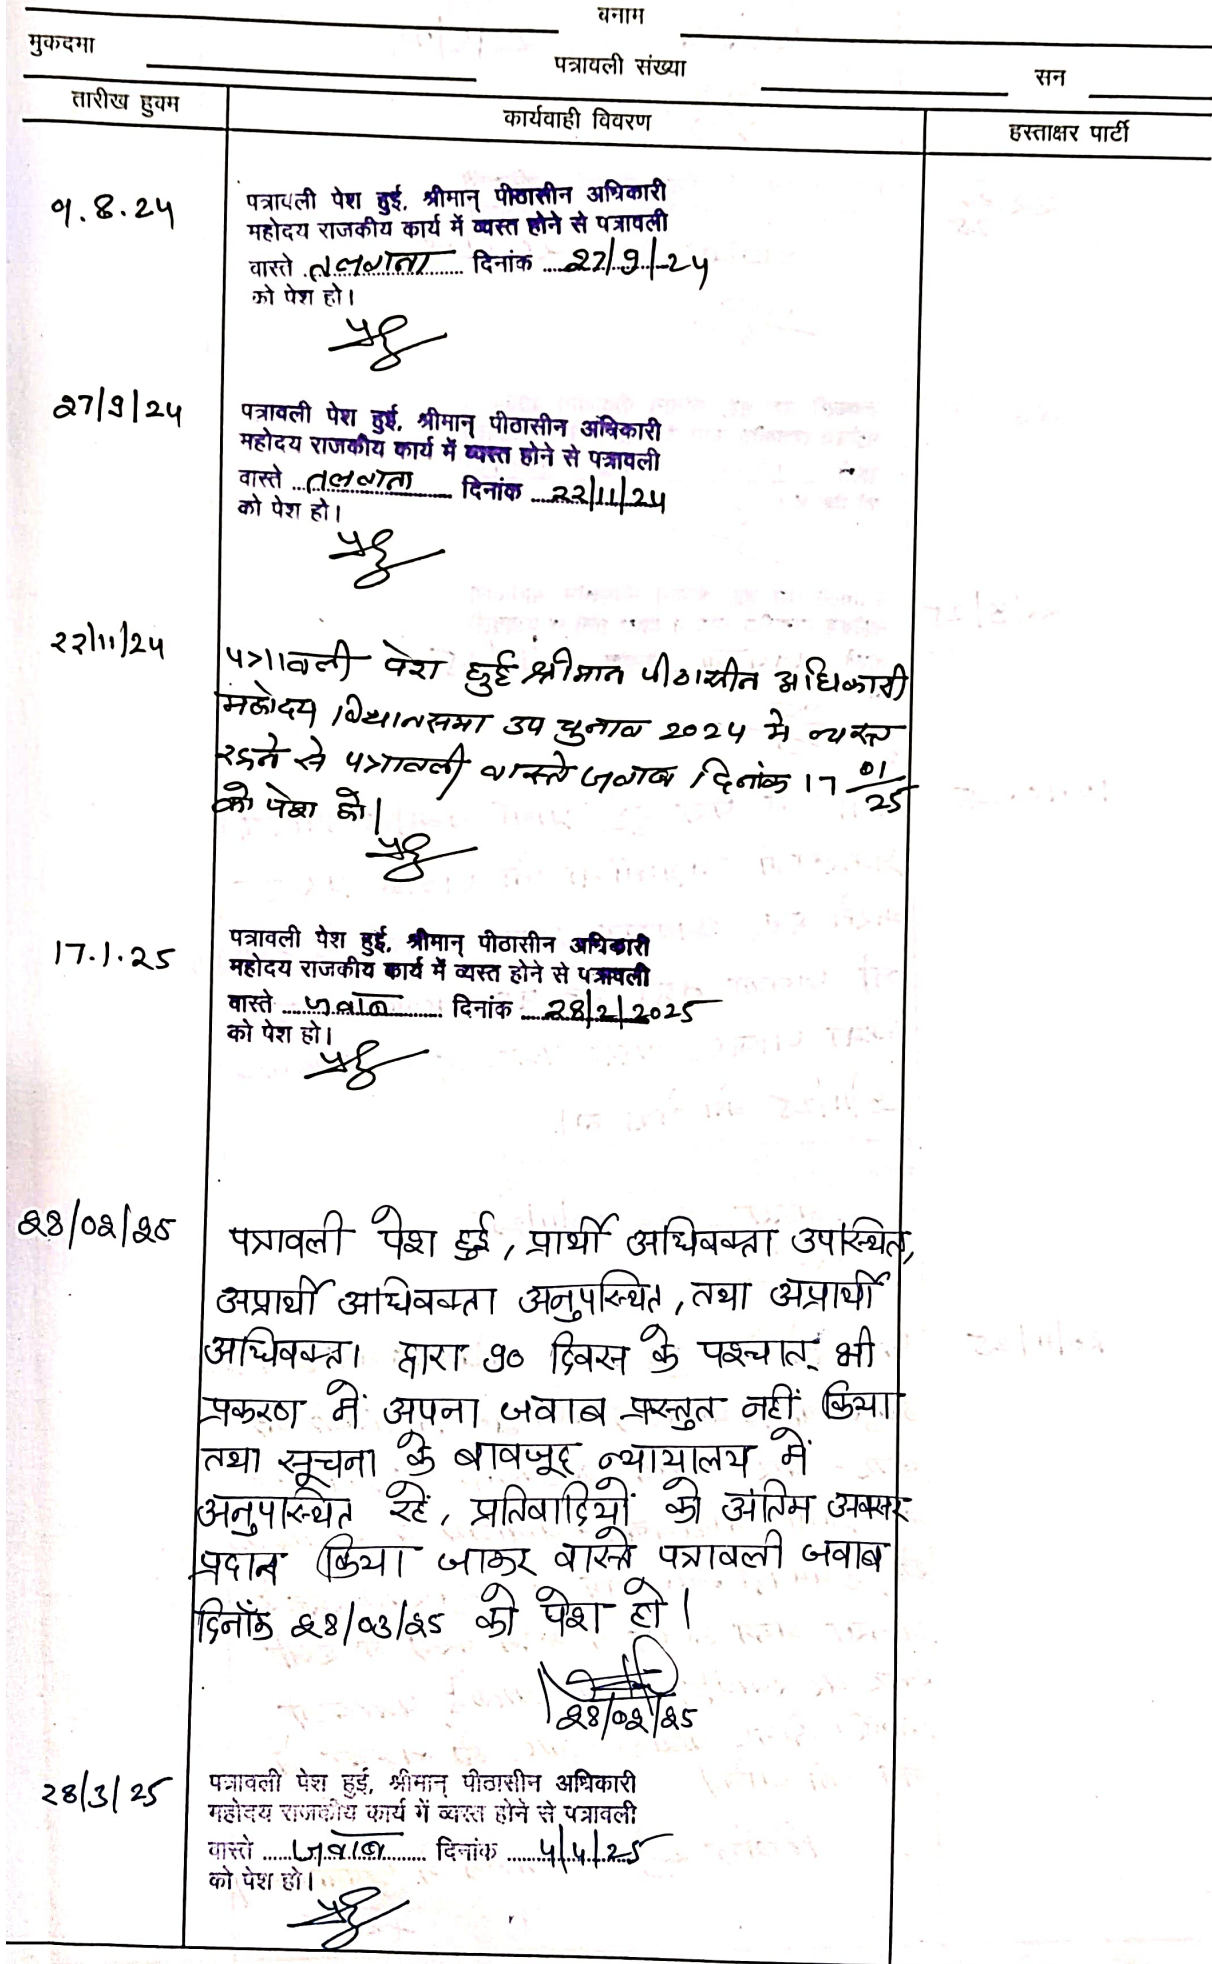 बनाम
मुकदमा पत्रावली संख्या सन
तारीख हुक्म कार्यवाही विवरण हस्ताक्षर पार्टी
9.8.24 पत्रावली पेश हुई, श्रीमान् पीठासीन अधिकारी
महोदय राजकीय कार्य में व्यस्त होने से पत्रावली
वास्ते तलवाना दिनांक 27/9/24
को पेश हो।
27/9/24 पत्रावली पेश हुई, श्रीमान् पीठासीन अधिकारी
महोदय राजकीय कार्य में व्यस्त होने से पत्रावली
वास्ते तलवाना दिनांक 22/11/24
को पेश हो।
22/11/24 पत्रावली पेश हुई श्रीमान पीठासीन अधिकारी
महोदय विधानसभा उप चुनाव 2024 मे व्यस्त
रहने से पत्रावली वास्ते जवाब दिनांक 17 01/25
को पेश हो।
17.1.25 पत्रावली पेश हुई, श्रीमान् पीठासीन अधिकारी
महोदय राजकीय कार्य में व्यस्त होने से पत्रावली
वास्ते जवाब दिनांक 28/2/2025
को पेश हो।
28/02/25 पत्रावली पेश हुई, प्रार्थी अधिवक्ता उपस्थित,
अप्रार्थी अधिवक्ता अनुपस्थित, तथा अप्रार्थी
अधिवक्ता द्वारा 90 दिवस के पश्चात् भी
प्रकरण में अपना जवाब प्रस्तुत नहीं किया
तथा सूचना के बावजूद न्यायालय में
अनुपस्थित रहें, प्रतिवादियों को अंतिम अवसर
प्रदान किया जाकर वास्ते पत्रावली जवाब
दिनाँक 28/03/25 को पेश हो।
28/02/25
28/3/25 पत्रावली पेश हुई, श्रीमान् पीठासीन अधिकारी
महोदय राजकीय कार्य में व्यस्त होने से पत्रावली
वास्ते जवाब दिनांक 4/4/25
को पेश हो।